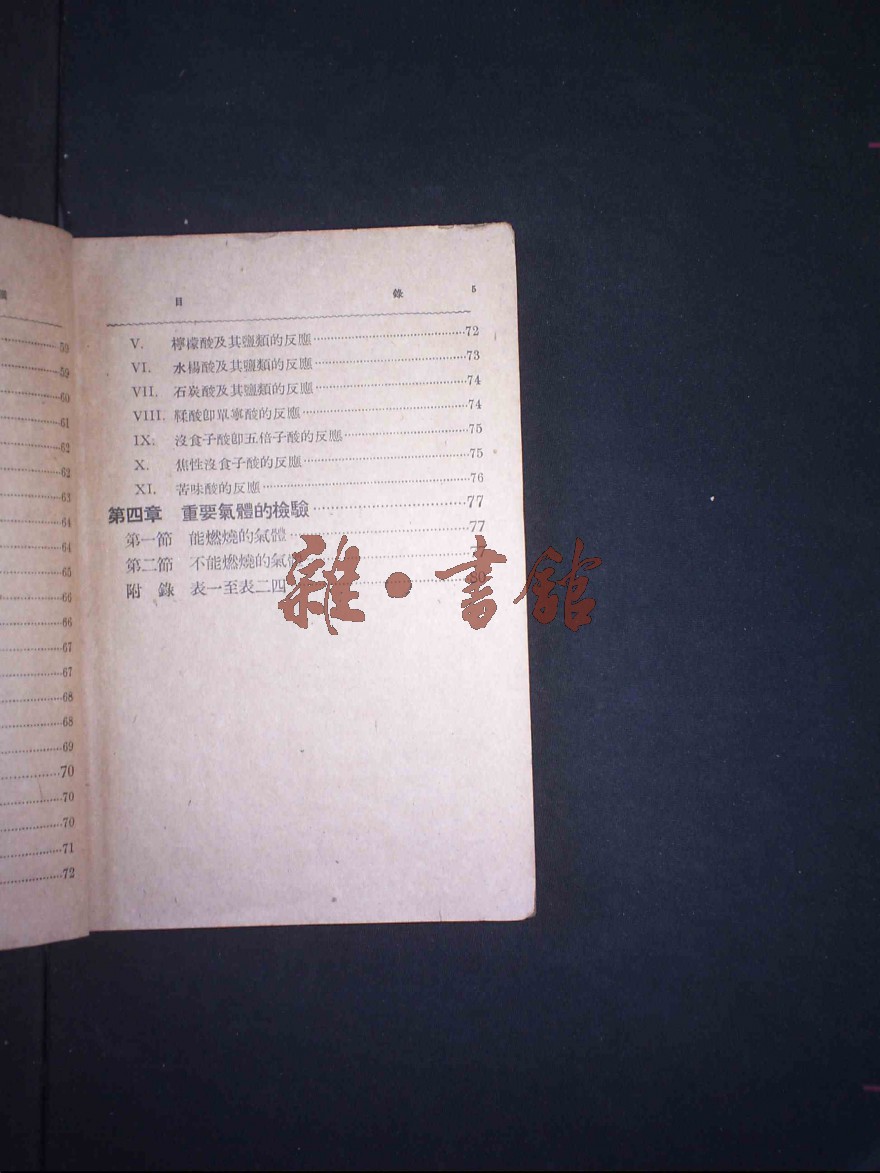 59
59
60
61
62
62
63
64
64
65
66
66
67
67
68
68
69
70
70
70
71
72
目 錄 5
V. 檸檬酸及其鹽類的反應 72
VI. 水楊酸及其鹽類的反應 73
VII. 石炭酸及其鹽類的反應 74
VIII. 鞣酸卽單寧酸的反應 74
IX. 沒食子酸卽五倍子酸的反應 75
X. 焦性沒食子酸的反應 75
XI. 苦味酸的反應 76
第四章 重要氣體的檢驗 77
第一節 能燃燒的氣體 77
第二節 不能燃燒的氣體
附 錄 表一至表二四 80
雜·書館